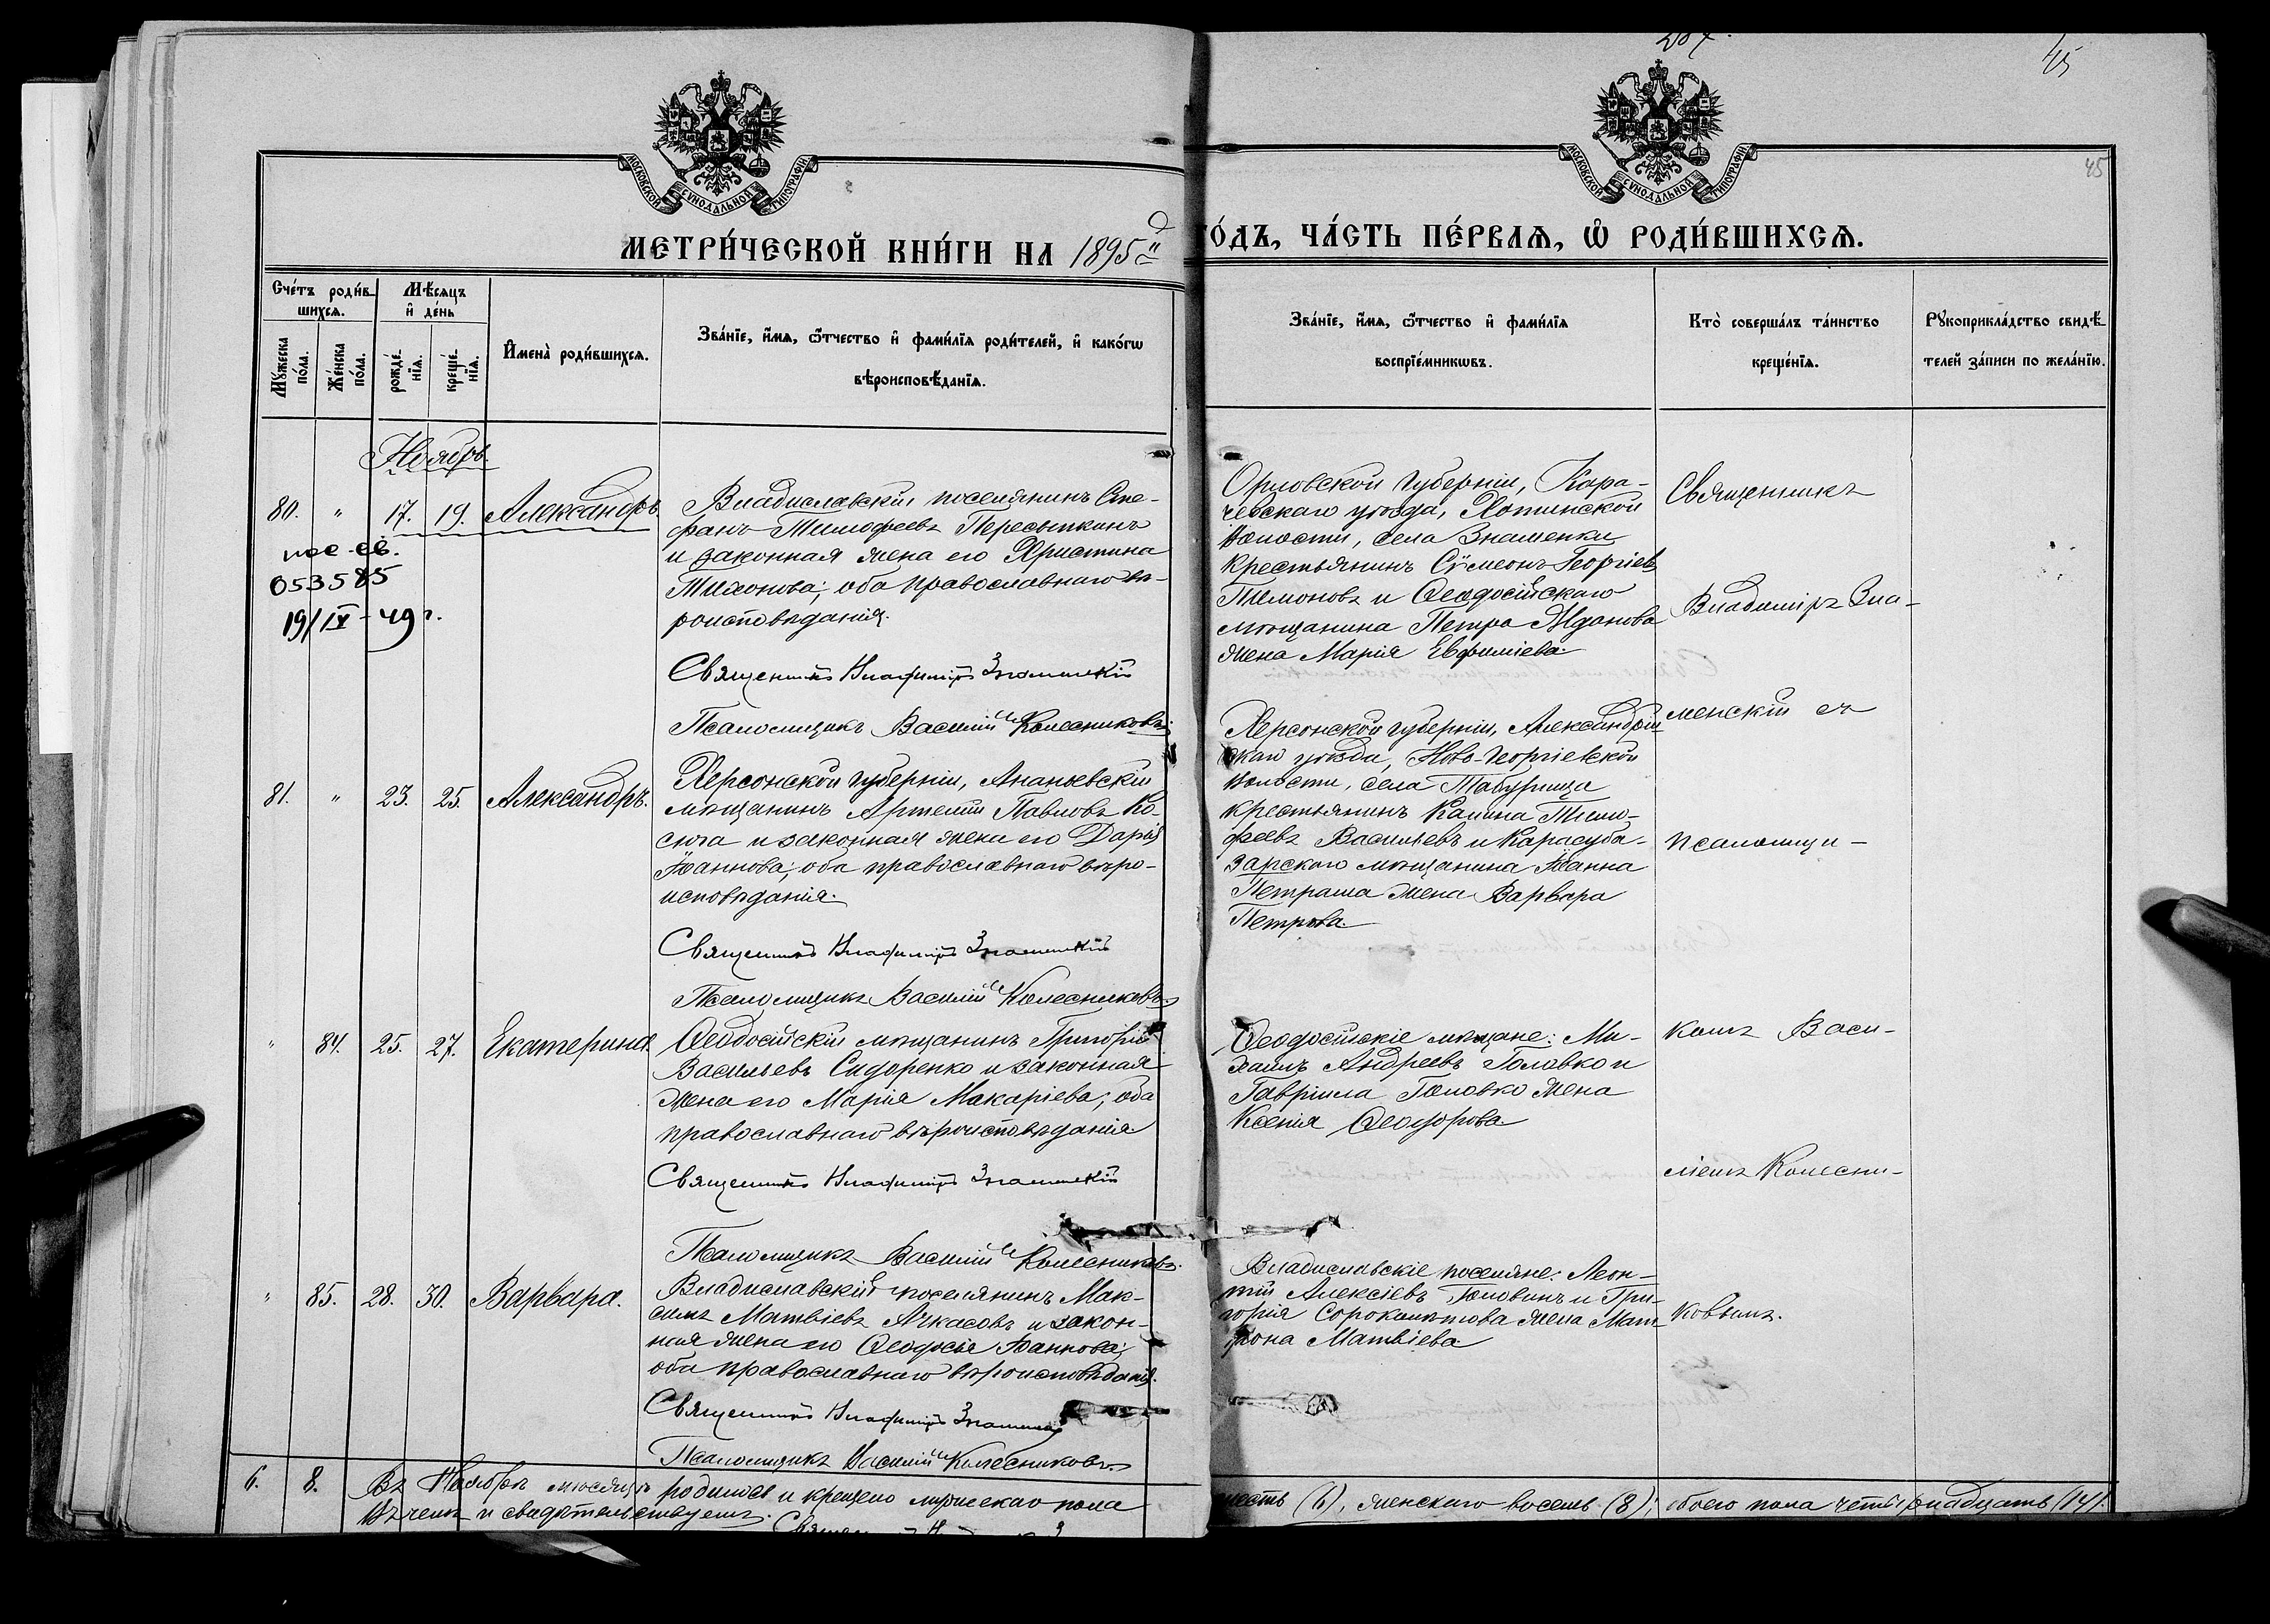 45
45
МОСКОВСКОЙ СѴНОДАЛЬНОЙ ТИПОГРАФІИ
МОСКОВСКОЙ СѴНОДАЛЬНОЙ ТИПОГРАФІИ
МЕТРИ́ЧЕСКОЙ КНИ́ГИ НА 1895й
ГО́ДЪ, ЧА́СТЬ ПЕ́РВАѦ, Ѡ РОДИ́ВШИХСѦ.
Сче́тъ роди́в-
шихсѧ.
Мꙋ́жеска по́ла.
Же́нска по́ла.
Мѣ́сѧцъ
и҆ де́нь
рожде́-
нїѧ.
креще́-
нїѧ.
И҆мена̀ роди́вшихсѧ.
Зва́нїе, и҆́мѧ, ѻ҆́тчество и҆ фами́лїѧ роди́телей, и҆ како́гѡ
вѣроисповѣ́данїѧ.
Зва́нїе, и҆́мѧ, ѻ҆́тчество и҆ фами́лїѧ
воспрїе́мникѡвъ.
Кто̀ соверша́лъ та́инство
креще́нїѧ.
Рꙋкоприкла́дство свидѣ́-
телей за́писи по жела́нїю.
Ноябрь.
80. " 17. 19. Александръ
пос. св.
053585
19/IV - 49 г.
Владиславскій поселянинъ Сте-
фанъ Тимофеевъ Пересыпкинъ
и законная жена его Христина
Тихонова; оба православнаго вѣ-
роисповѣданія.
Священникъ Владиміръ Знаменскій
Псаломщикъ Василій Колесниковъ.
Орловской губерніи, Кара-
чевскаго уѣзда, Хотинской
волости, села Знаменки
крестьянинъ Сѵмеонъ Георгіевъ
Тимоновъ и Ѳеодосійскаго
мѣщанина Петра Жданова
жена Марія Евфиміева.
Священникъ
Владиміръ Зна-
менскій съ
псаломщи-
комъ Васи-
ліемъ Колесни-
ковымъ.
81. " 23. 25. Александръ.
Херсонской губерніи, Ананьевскій
мѣщанинъ Артемій Павловъ Ко-
сюга и законная жена его Дарія
Іоаннова; оба православнаго вѣро-
исповѣданія.
Священникъ Владиміръ Знаменскій
Псаломщикъ Василій Колесниковъ.
Херсонской губерніи, Александрій-
скаго уѣзда, Ново-Георгіевской
волости, села Табурища
крестьянинъ Калина Тимо-
феевъ Васильевъ и Карасуба-
зарскаго мѣщанина Іоанна
Петраша жена Варвара
Петрова.
" 84. 25. 27. Екатерина.
Ѳеодосійскій мѣщанинъ Григорій
Васильевъ Сидоренко и законная
жена его Марія Макаріева; оба
православнаго вѣроисповѣданія
Священникъ Владиміръ Знаменскій
Псаломщикъ Василій Колесниковъ.
Ѳеодосійскіе мѣщане: Ми-
хаилъ Андреевъ Головко и
Гавріила Головко жена
Ксенія Ѳеодорова
" 85. 28. 30. Варвара.
Владиславскій поселянинъ Мак-
симъ Матвіевъ Ачкасовъ и закон-
ная жена его Ѳеодосія Іоаннова;
оба православнаго вѣроисповѣданія.
Священникъ Владиміръ Знаменскій
Псаломщикъ Василій Колесниковъ.
Владиславскіе поселяне: Леон-
тій Алексіевъ Головинъ и Гри-
горія Сороколѣтова жена Мат-
рона Матвіева.
6. 8. Въ Ноябрѣ мѣсяцѣ родилось и крещено мужескаго пола
шесть (6), женскаго восемь (8); обоего пола четырнадцать (14).
Въ чемъ и свидѣтельствуемъ.